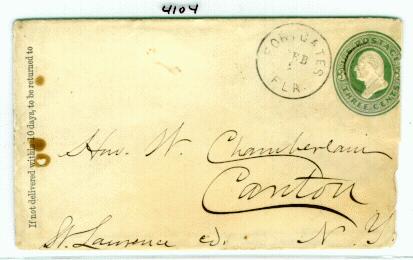 4104
If not delivered within 10 days, to be returned to
FORT GATES
FEB
FLA.
U.S. POSTAGE
THREE CENTS
Hon. W. Chamberlain
Canton
St. Lawrence co. N. Y.